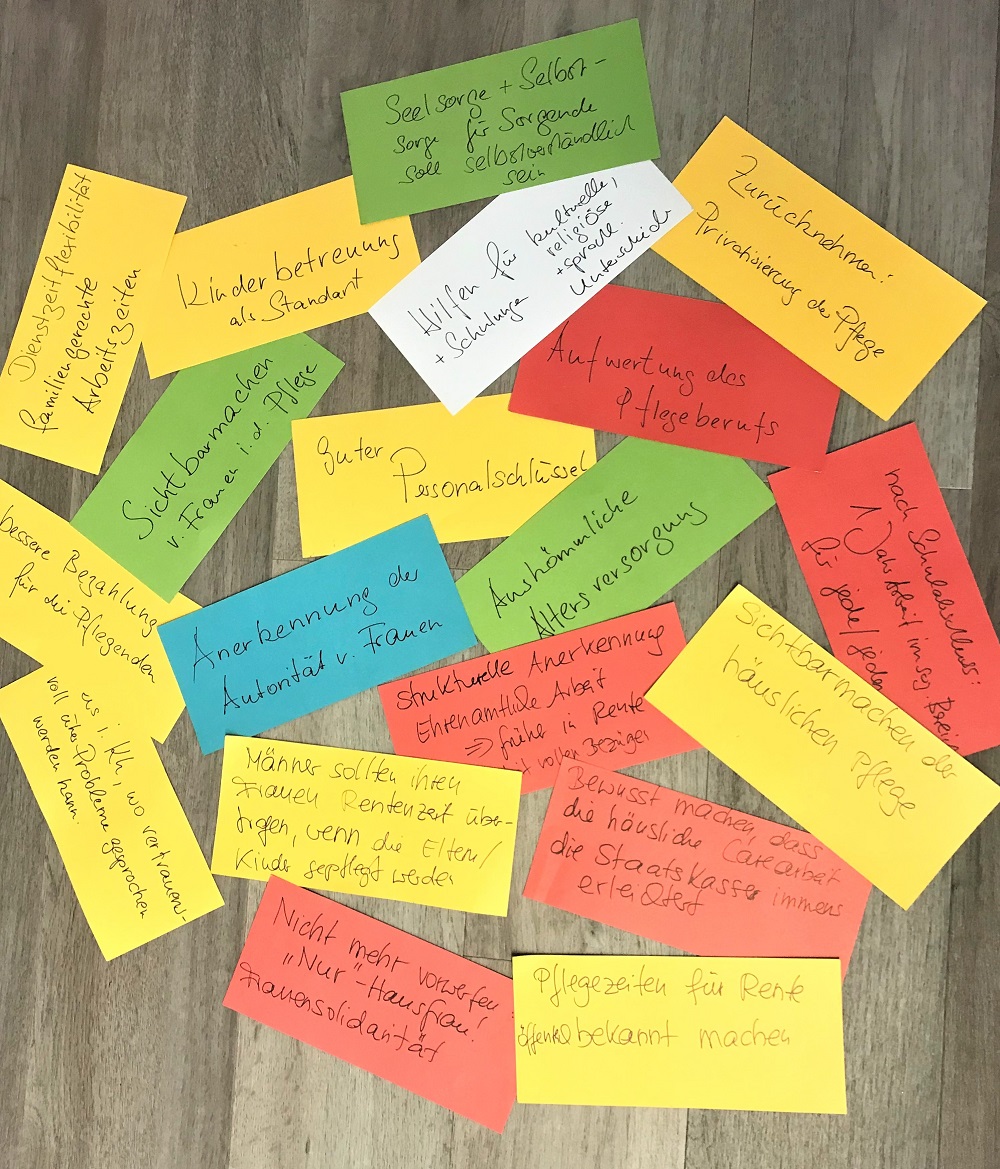 Seelsorge + Selbst-
sorge für Sorgende
soll selbstverständlich
sein
Dienstzeitflexibilität
familiengerechte
Arbeitszeiten
Kinderbetreuung
als Standart
Hilfen für kulturelle,
religiöse
+ sprachl.
Unterschiede
+ Schulungen
Zurücknehmen:
Privatisierung der Pflege
Aufwertung des
Pflegeberufs
Sichtbarmachen
v. Frauen i.d. Pflege
guter
Personalschlüssel
Auskömmliche
Altersversorgung
nach Schulabschluss:
1 Jahr Arbeit im soz.
für jede/jeden
bessere Bezahlung
für die Pflegenden
Anerkennung der
Autorität v. Frauen
strukturelle Anerkennung
Ehrenamtliche Arbeit
=> früher in Rente
mit vollen Bezügen
Sichtbarmachen der
häuslichen Pflege
i. Kh, wo vertrauens-
voll über Probleme gesprochen
werden kann.
Männer sollten ihren
Frauen Rentenzeit über-
tragen, wenn die Eltern/
Kinder gepflegt werden
Bewusst machen, dass
die häusliche Carearbeit
die Staatskasse immens
erleichtert
Nicht mehr vorwerfen
„Nur"-Hausfrau!
Frauensolidarität
Pflegezeiten für Rente
öffentl bekannt machen